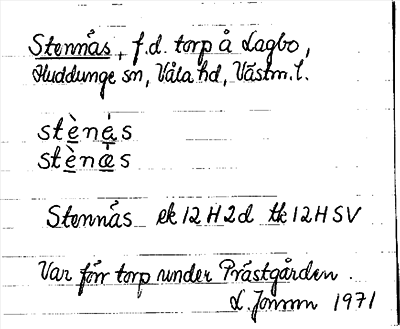 Stennås, f.d. torp å Lagbo,
Huddunge sn, Våla hd, Västm.l.
stènås
stènæs
Stennås ek 12 H 2d tk 12 H SV
Var förr torp under Prästgården.
L. Jonmon 1971